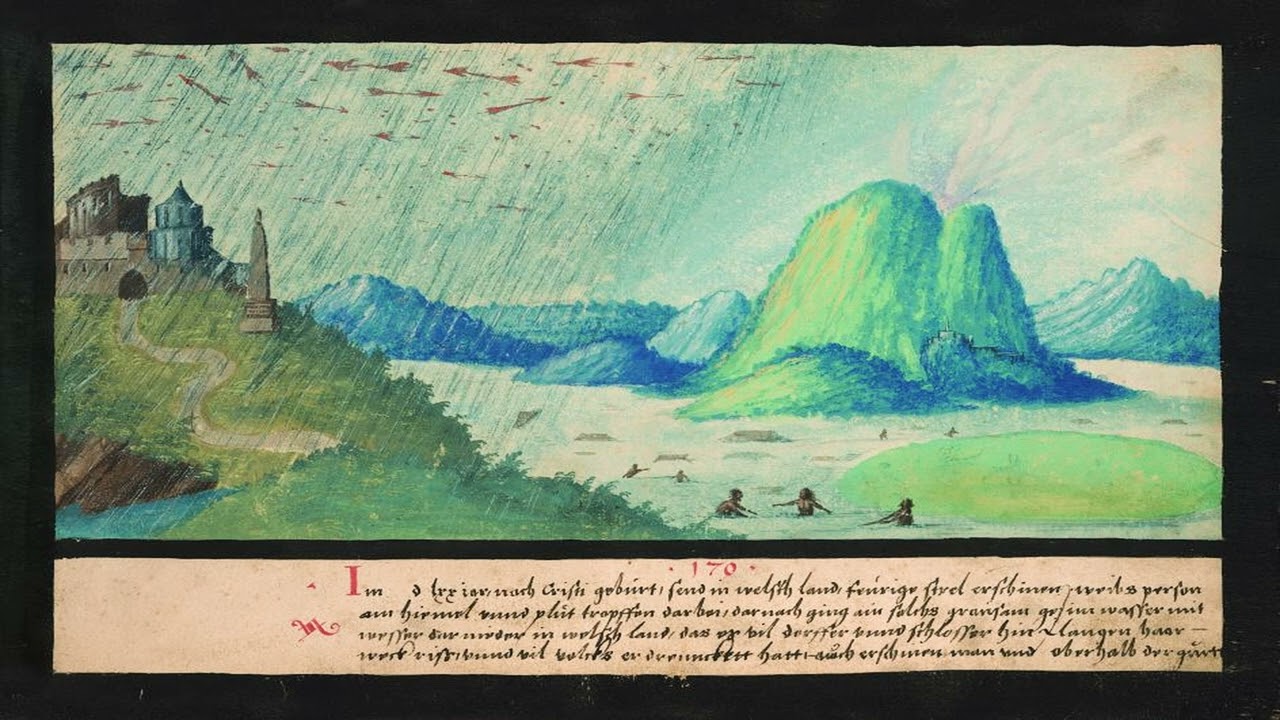 · 170 ·
Im d lxx iar, nach Cristi gebürt, send in welsch land, feürige strel erschinen,
am hiemel vnnd plüt tropffen darbei, darnach ging ain solchs graüsam wasser mit
wesser dar nieder in welsch land, das vil derffer vnnd schlosser hin
weck riss, vnnd vil volcks er drenncktt hatt, aüch erschinen man vnd oberhalb der gürt